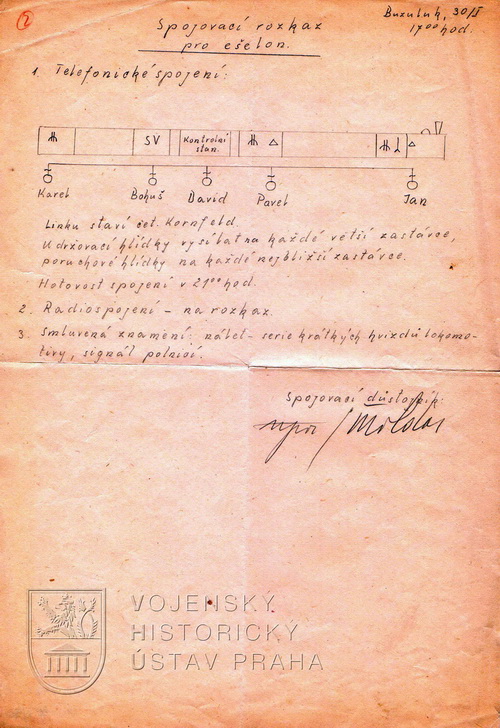 2
Buzuluk, 30/I
17⁰⁰ hod.
Spojovací rozkaz
pro ešelon.
1. Telefonické spojení:
SV
Kontrolní
stan.
Karel
Bohuš
David
Pavel
Jan
Linku staví čet. Kornfeld.
Udržovací hlídky vysílat na každé větší zastávce,
poruchové hlídky na každé nejbližší zastávce.
Hotovost spojení v 21⁰⁰ hod.
2. Radiospojení – na rozkaz.
3. Smluvená znamení: nálet – serie krátkých hvizdů lokomo-
tivy, signál polnicí.
Spojovací důstojník:
VOJENSKÝ
HISTORICKÝ
ÚSTAV PRAHA